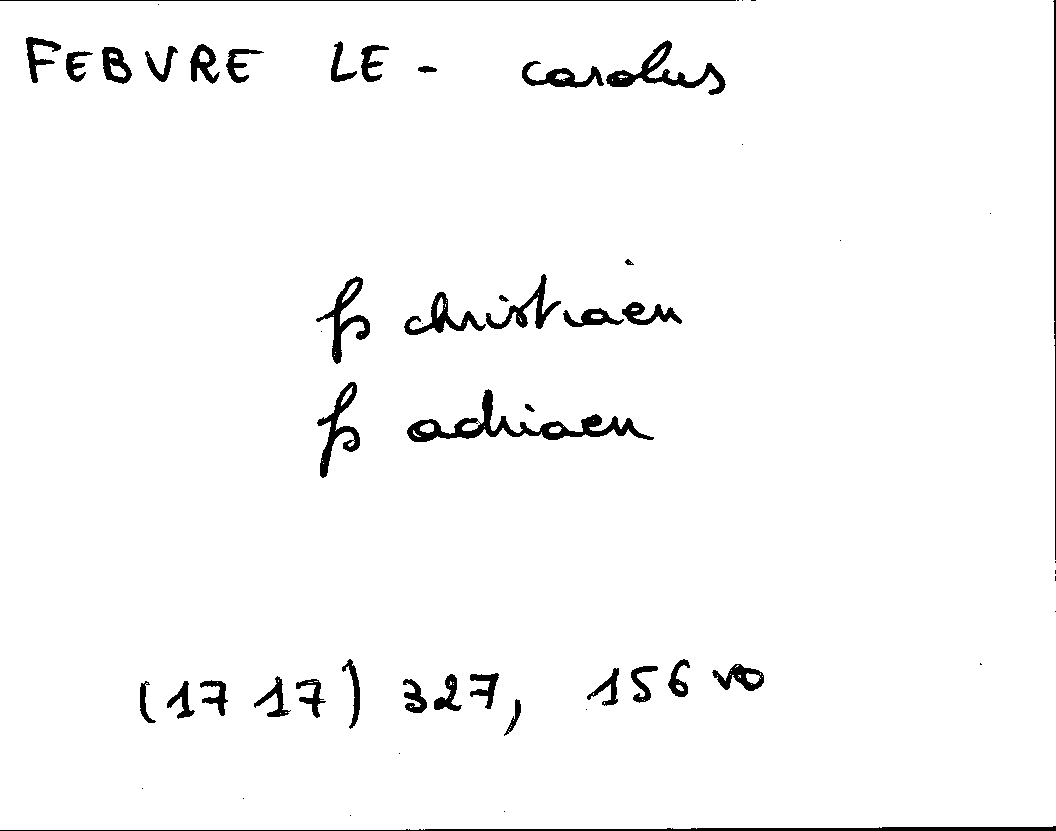 FEBVRE LE - carolus
fs christiaen
fs adriaen
(1717) 327, 156 vo